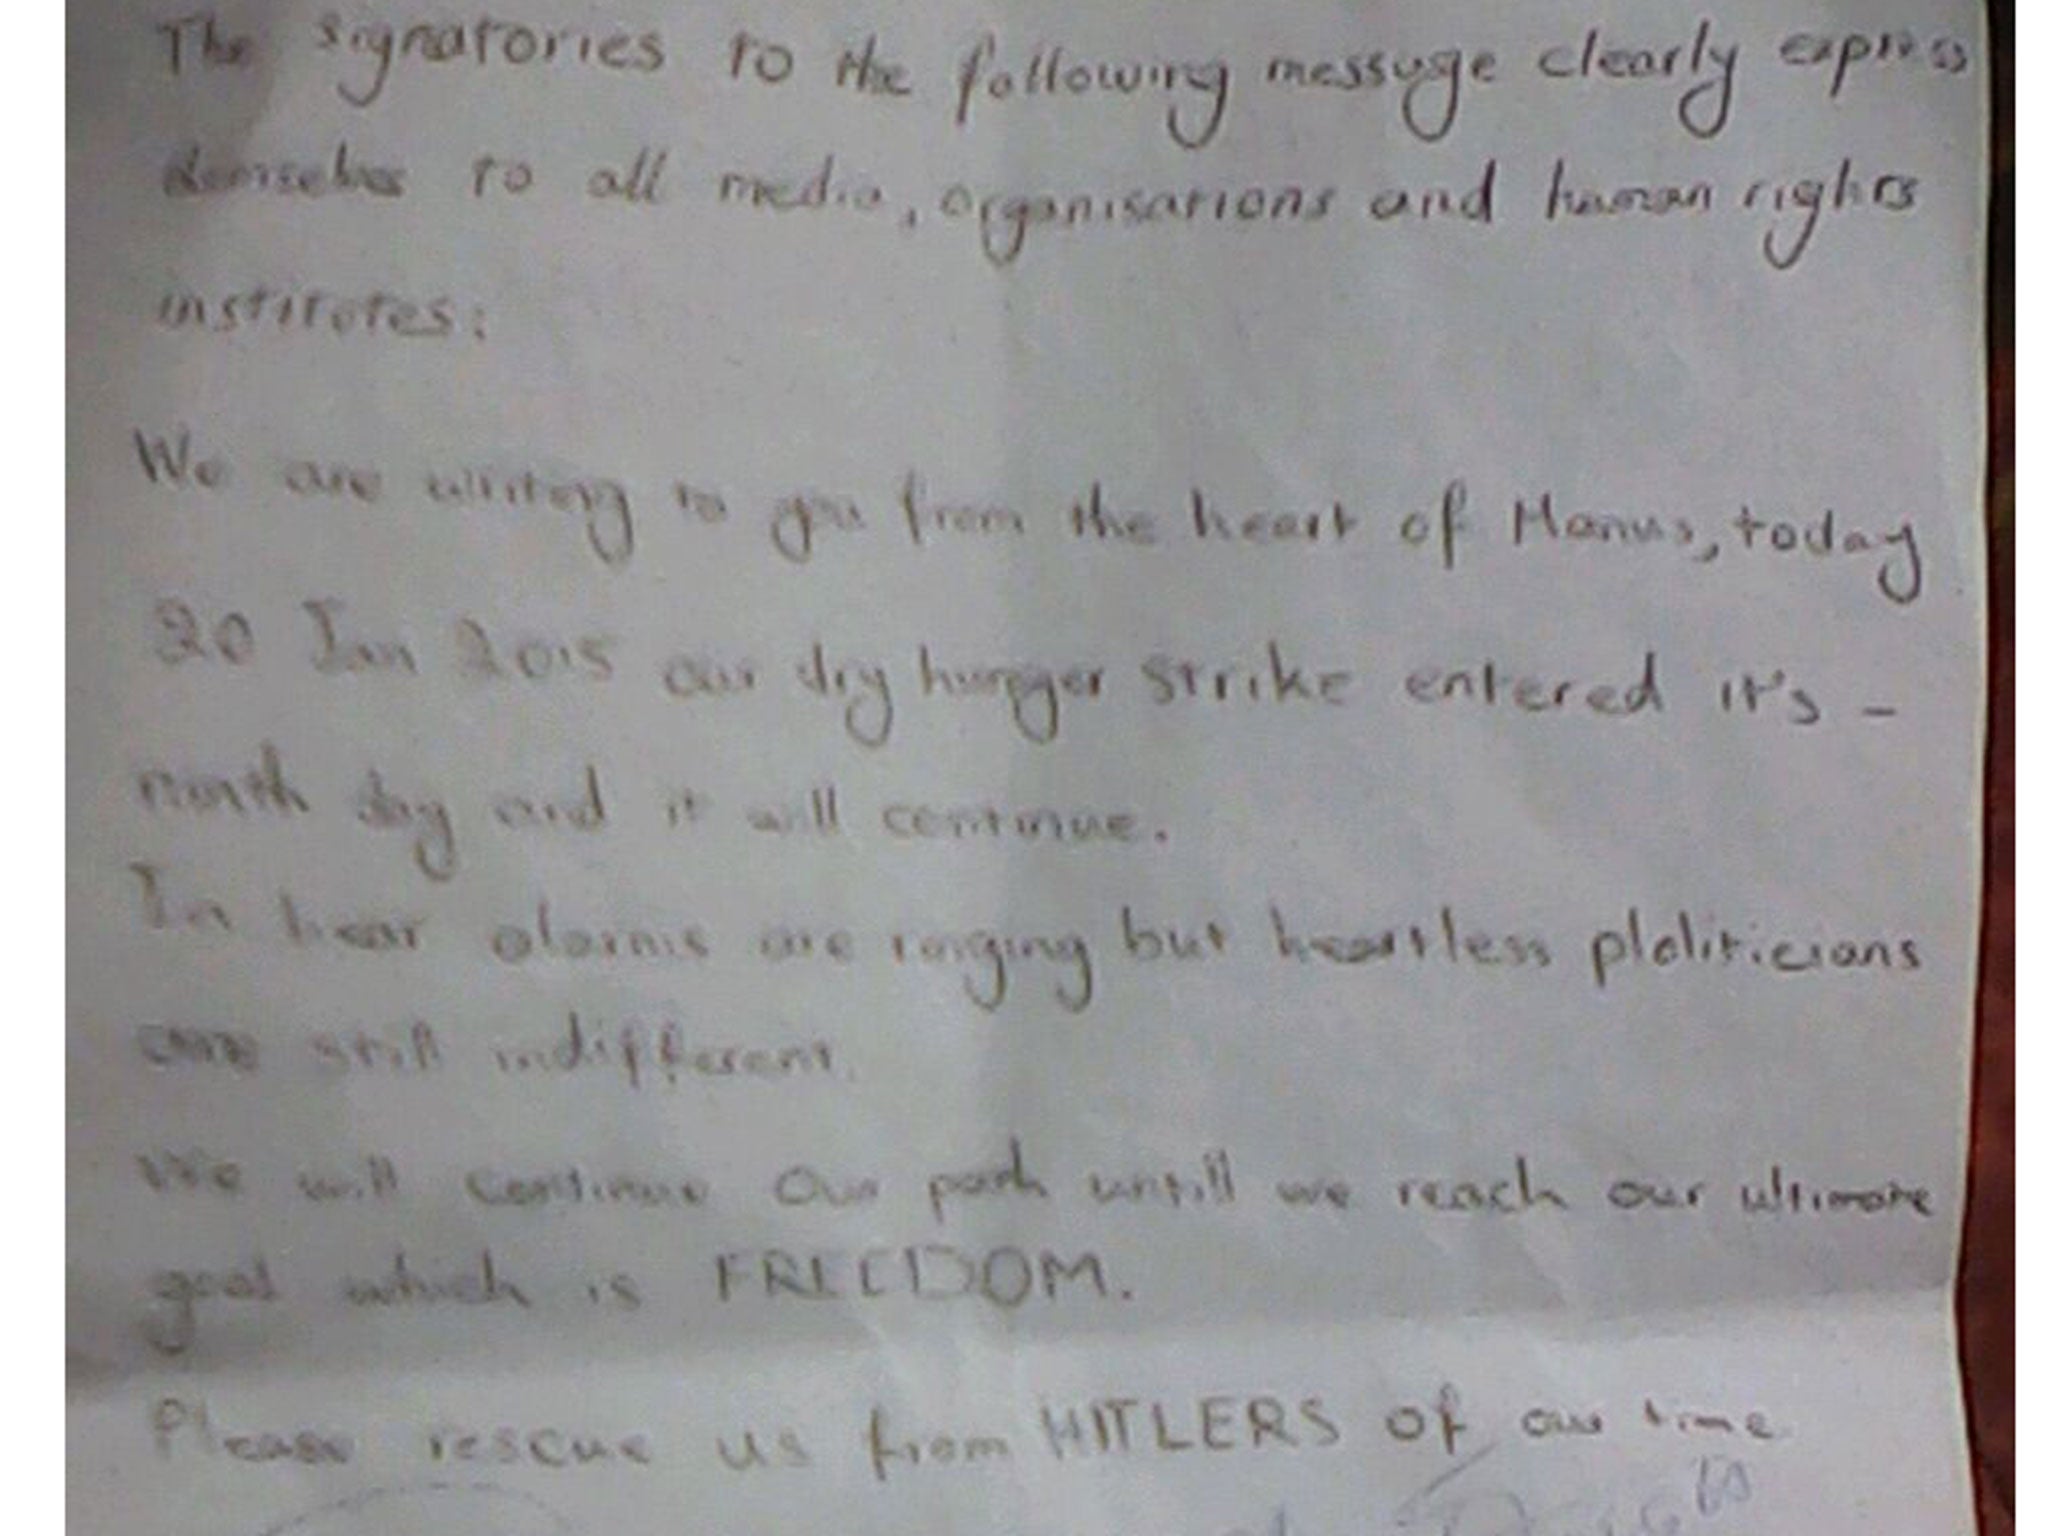 The signatories to the following message clearly express
demselves to all media, organisations and human rights
institutes:
We are writing to you from the heart of Manus, today
20 Jan 2015 our dry hunger strike entered it's -
ninth day and it will continue.
In hear alarms are ringing but heartless ploliticians
are still indifferent.
We will continue our path untill we reach our ultimate
goal which is FREEDOM.
Please rescue us from HITLERS of our time